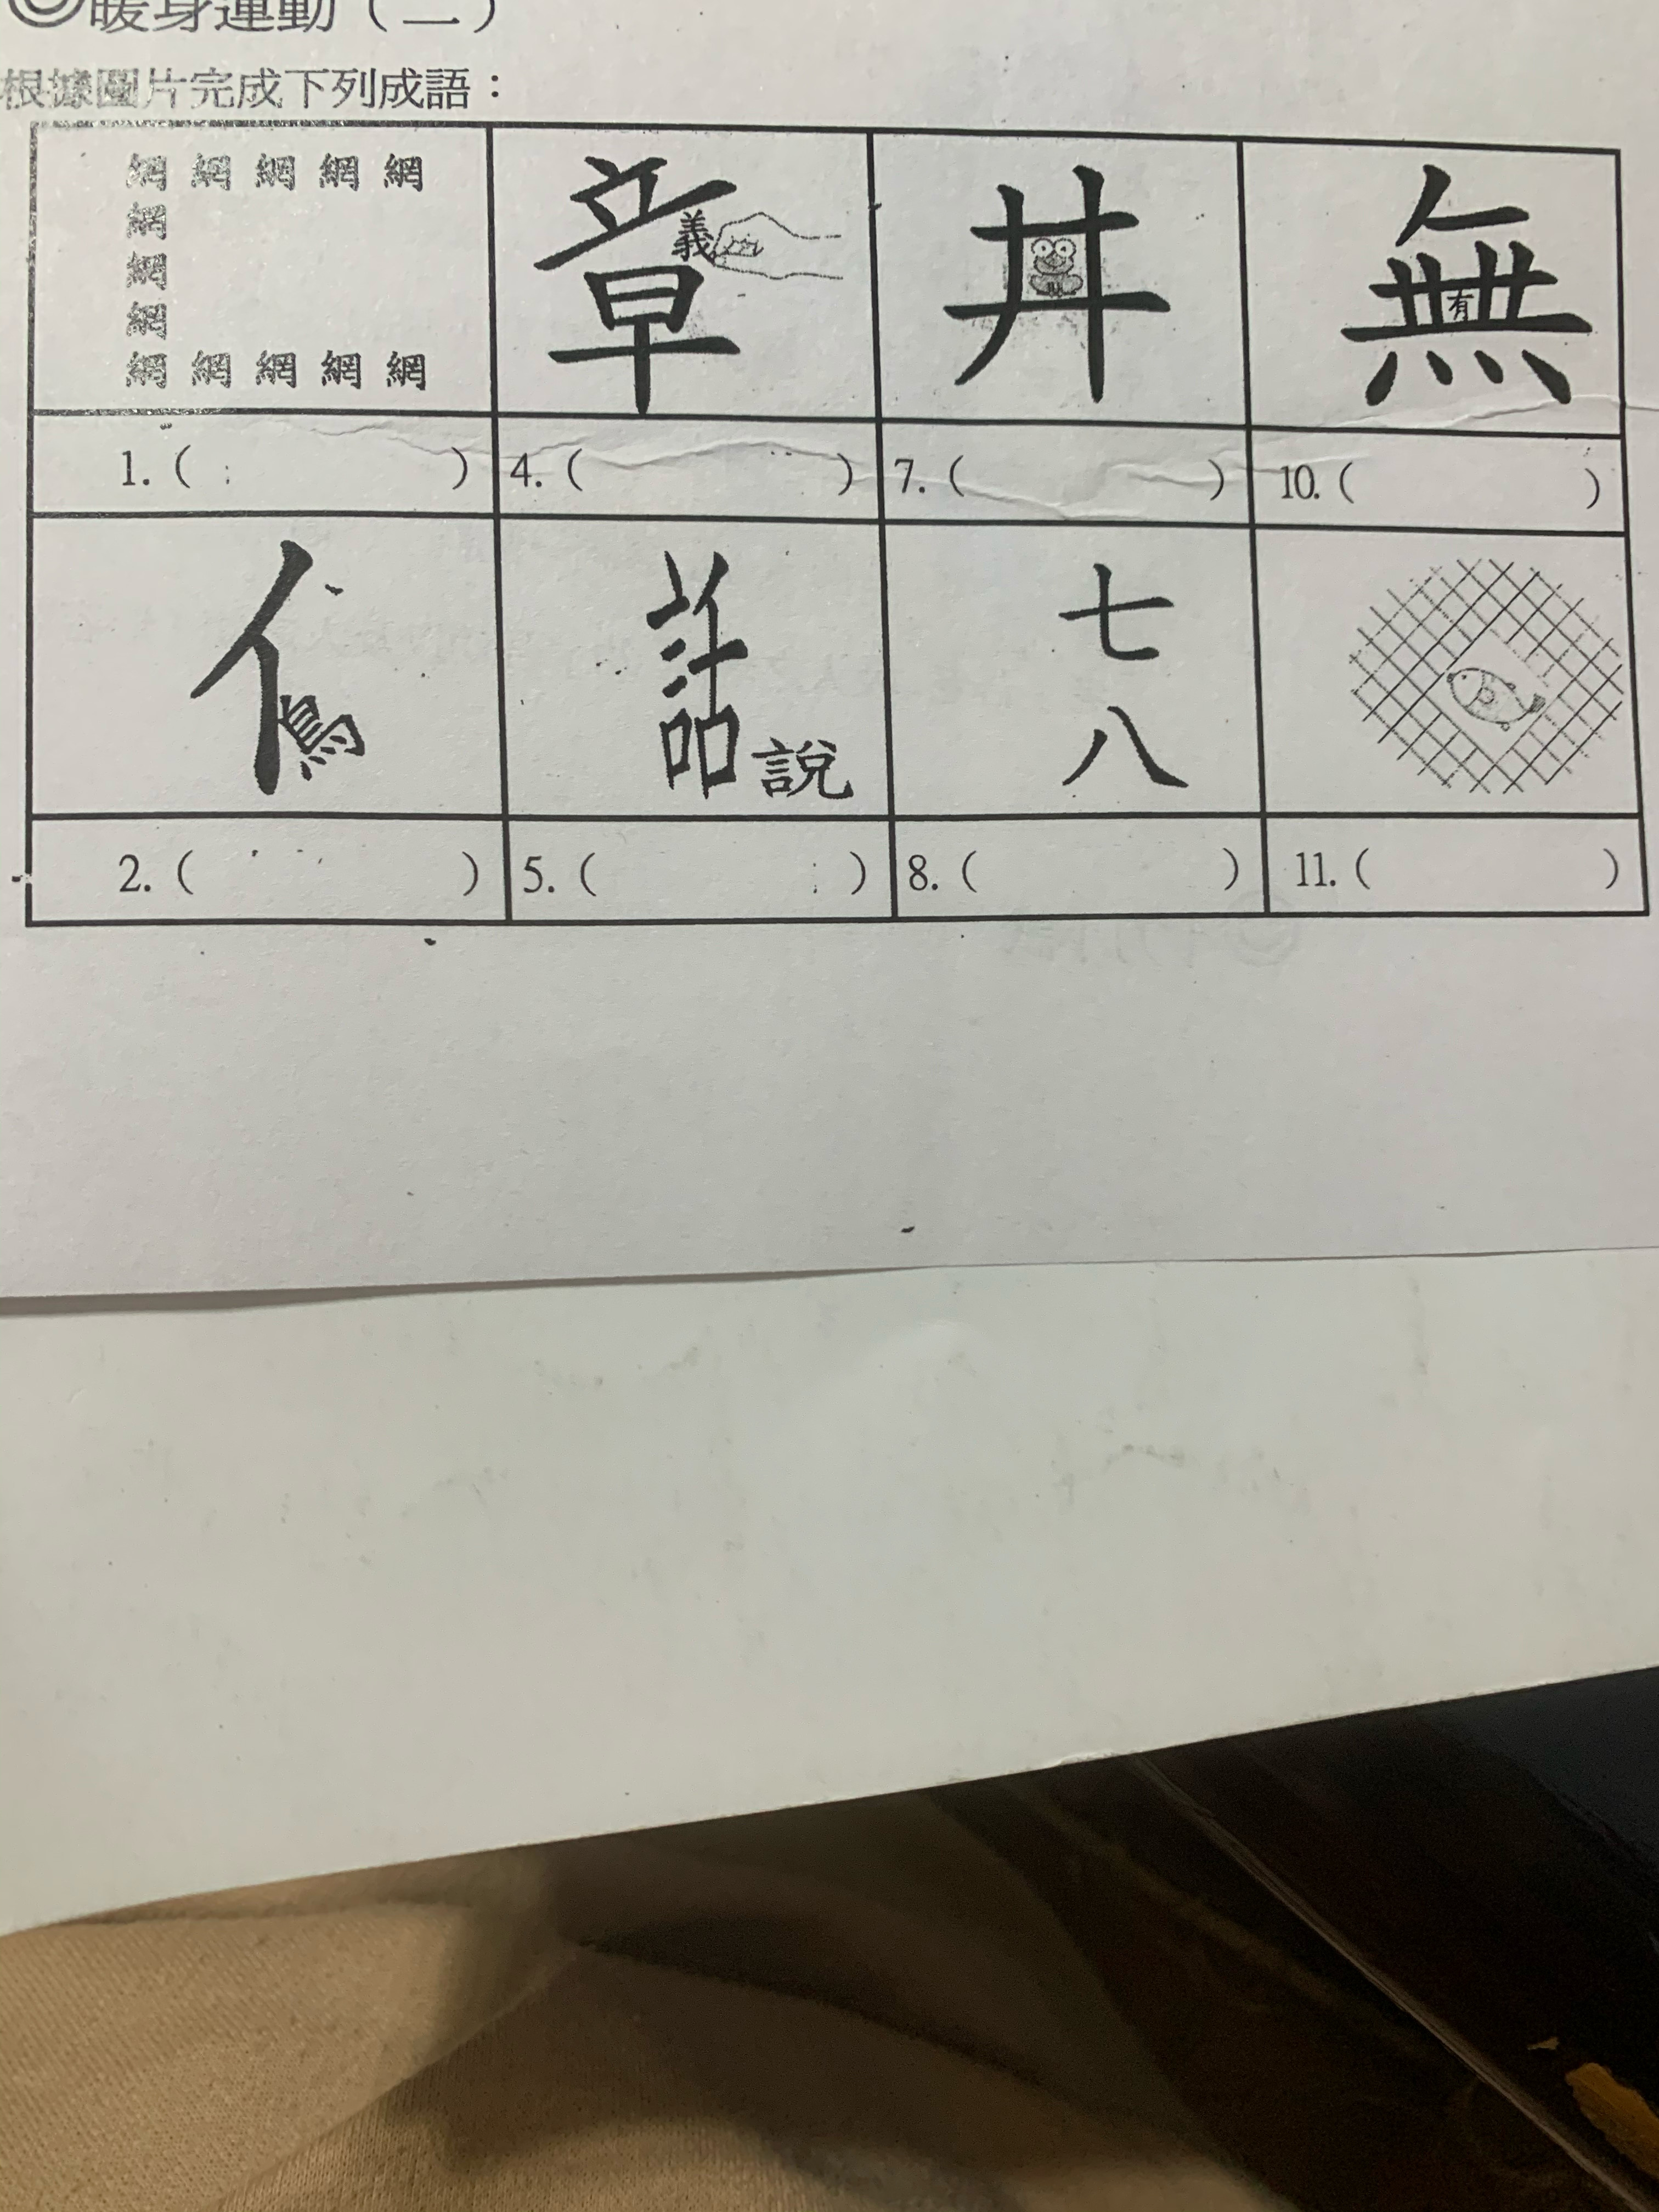 ◎暖身運動（二）
根據圖片完成下列成語：
網 網 網 網 網
網
網
網
網 網 網 網 網
章
義
井
無
有
1.（ ）
4.（ ）
7.（ ）
10.（ ）
亻
鳥
話
說
七
八
2.（ ）
5.（ ）
8.（ ）
11.（ ）